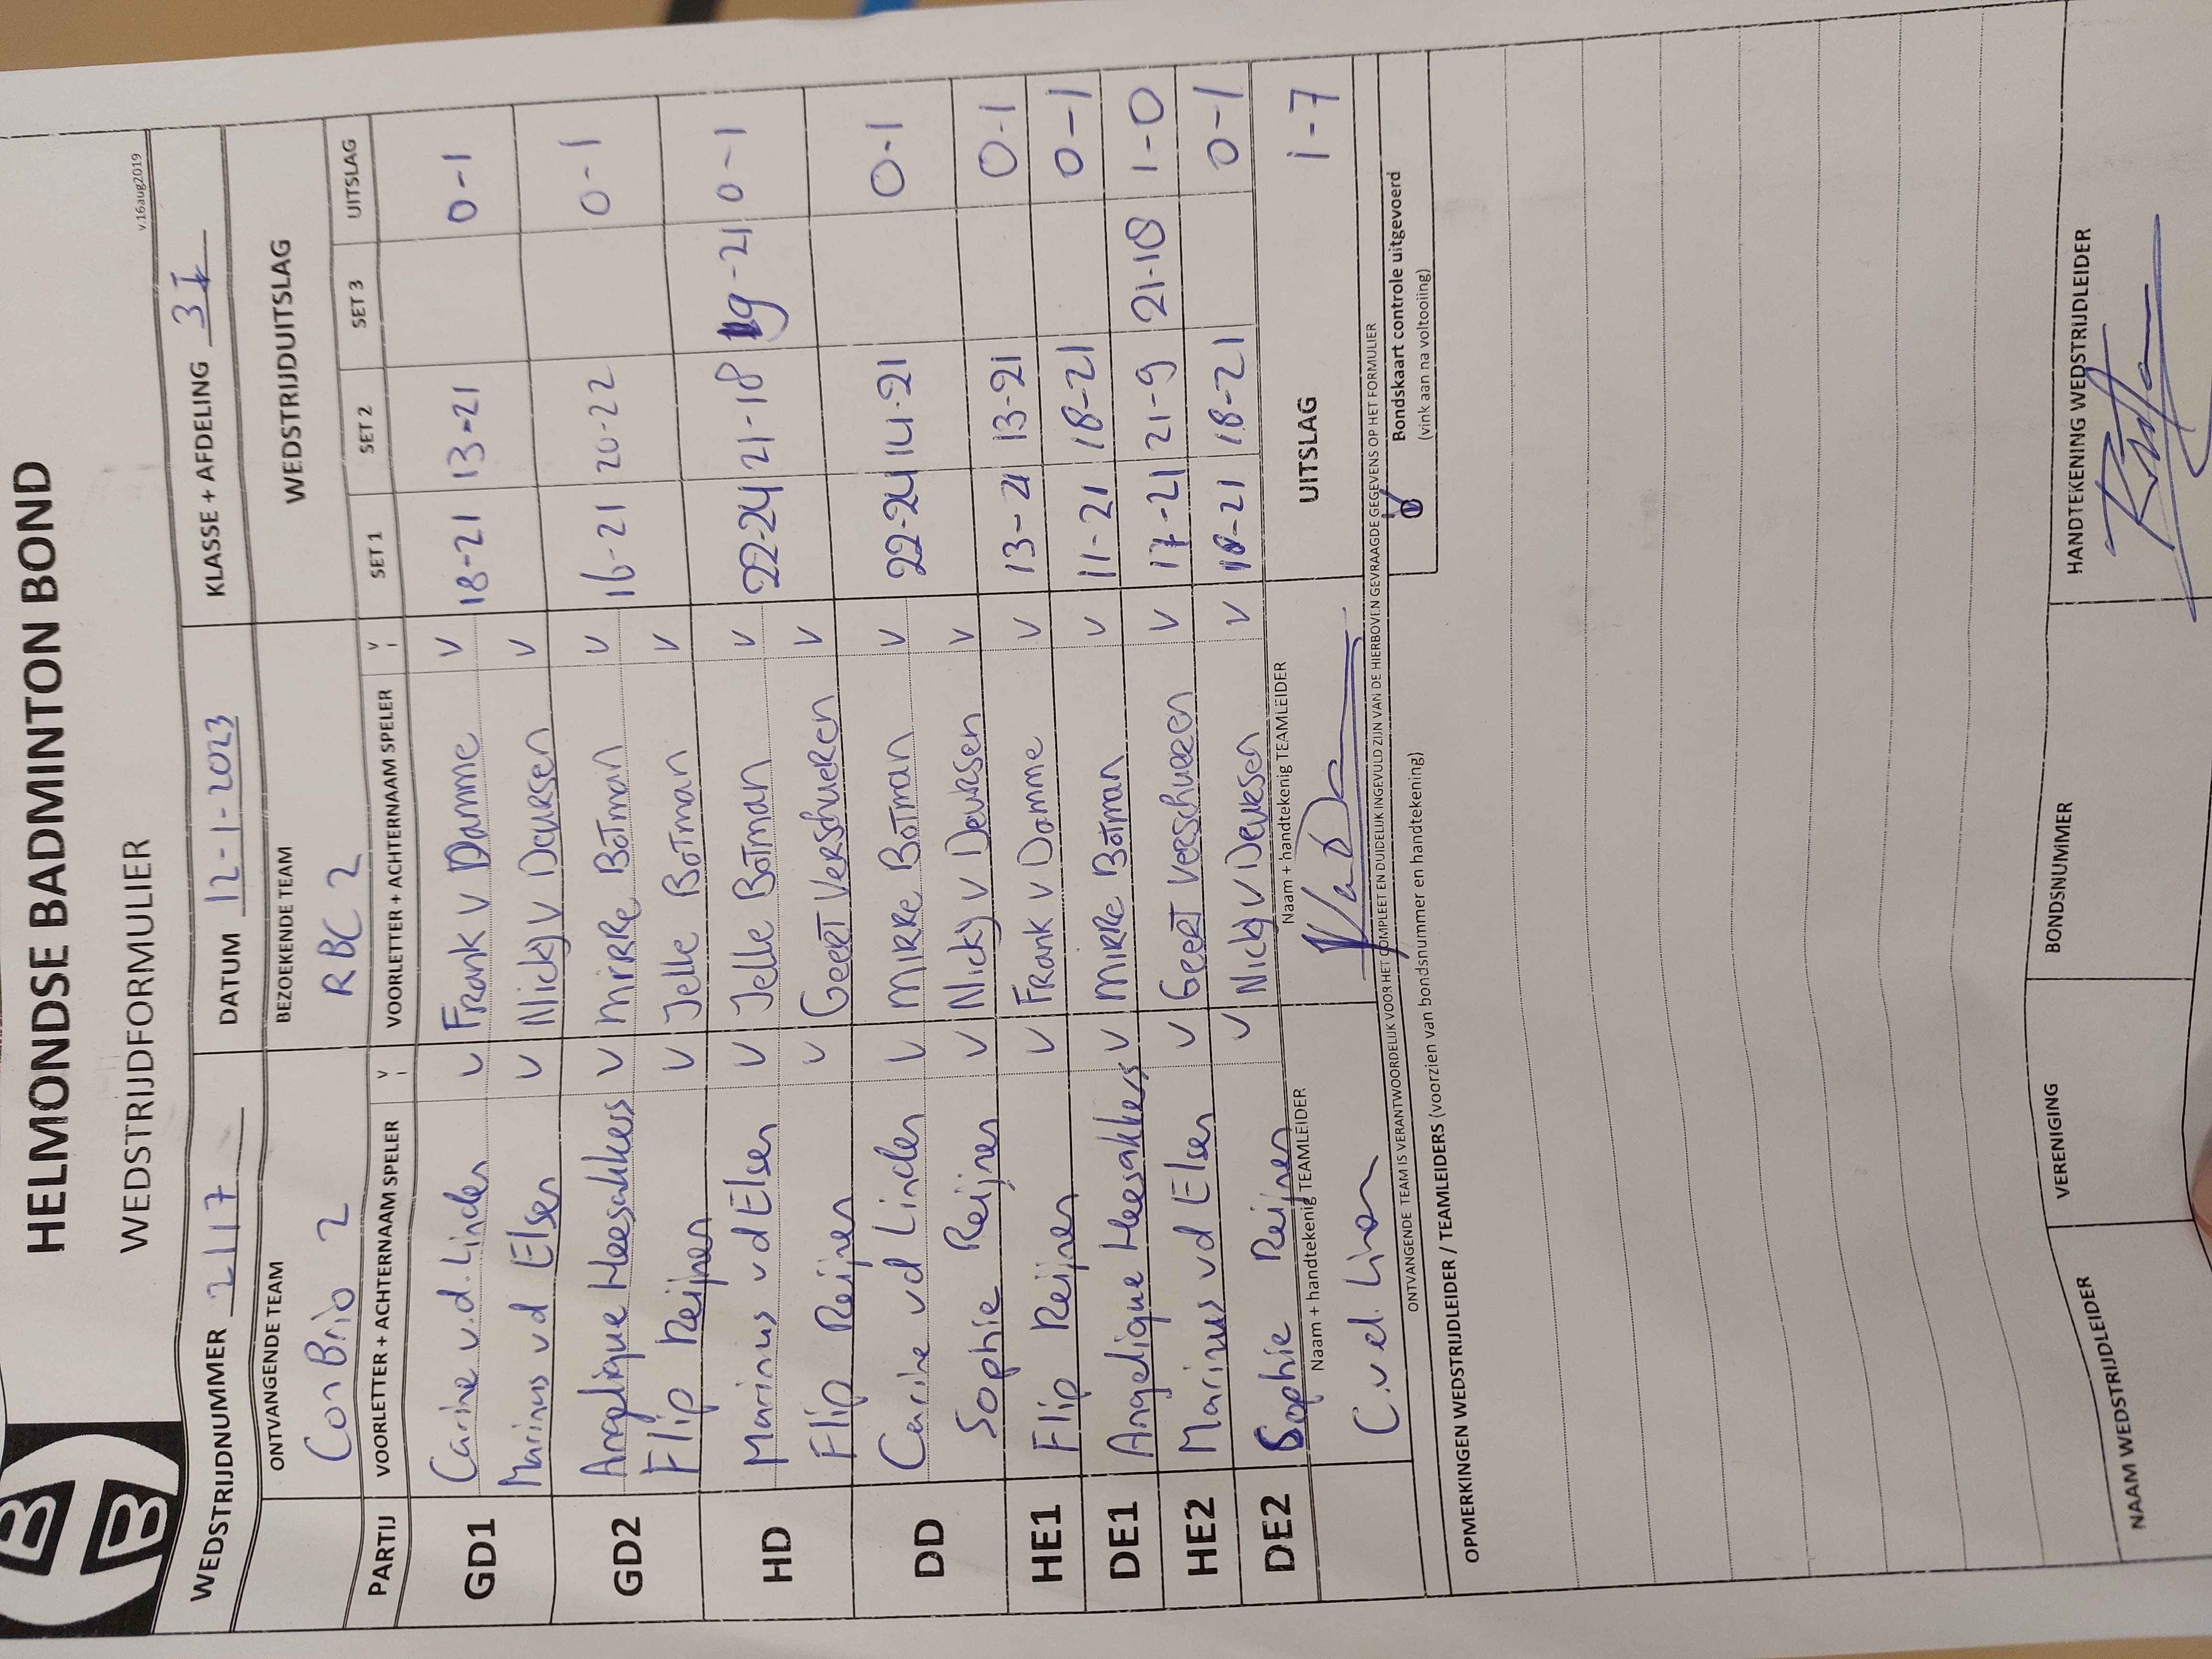 HELMONDSE BADMINTON BOND
WEDSTRIJDFORMULIER
v.16aug2019
WEDSTRIJDNUMMER 2117 DATUM 12-1-2023 KLASSE + AFDELING 3I
ONTVANGENDE TEAM BEZOEKENDE TEAM WEDSTRIJDUITSLAG
Con Brio 2 RBC 2
PARTIJ VOORLETTER + ACHTERNAAM SPELER V VOORLETTER + ACHTERNAAM SPELER V SET 1 SET 2 SET 3 UITSLAG
GD1 Carine v.d. Linden V Frank v Damme V 18-21 13-21 0-1
Marinus vd Elsen V Nicky v Deursen V
GD2 Angelique Heesakkers V Mirre Botman V 16-21 20-22 0-1
Flip Reijnen V Jelle Botman V
HD Marinus vd Elsen V Jelle Botman V 22-24 21-18 19-21 0-1
Flip Reijnen V Geert Verschueren V
DD Carine vd Linden V Mirre Botman V 22-24 14-21 0-1
Sophie Reijnen V Nicky v Deursen V
HE1 Flip Reijnen V Frank v Damme V 13-21 13-21 0-1
DE1 Angelique Heesakkers V Mirre Botman V 11-21 18-21 0-1
HE2 Marinus vd Elsen V Geert Verschueren V 17-21 21-9 21-18 1-0
DE2 Sophie Reijnen V Nicky v Deursen V 18-21 0-1
Naam + handtekenig TEAMLEIDER Naam + handtekenig TEAMLEIDER UITSLAG 1-7
ONTVANGENDE TEAM IS VERANTWOORDELIJK VOOR HET COMPLEET EN DUIDELIJK INGEVULD ZIJN VAN DE HIERBOVEN GEVRAAGDE GEGEVENS OP HET FORMULIER
Bondskaart controle uitgevoerd
(vink aan na voltooiing)
OPMERKINGEN WEDSTRIJDLEIDER / TEAMLEIDERS (voorzien van bondsnummer en handtekening)
NAAM WEDSTRIJDLEIDER VERENIGING BONDSNUMMER HANDTEKENING WEDSTRIJDLEIDER